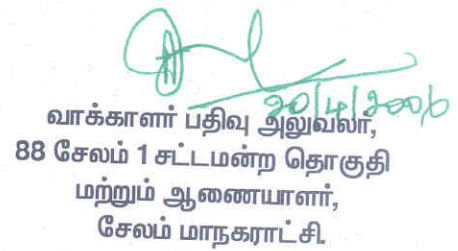 20/4/2006
வாக்காளர் பதிவு அலுவலர்,
88 சேலம் 1 சட்டமன்ற தொகுதி
மற்றும் ஆணையாளர்,
சேலம் மாநகராட்சி.